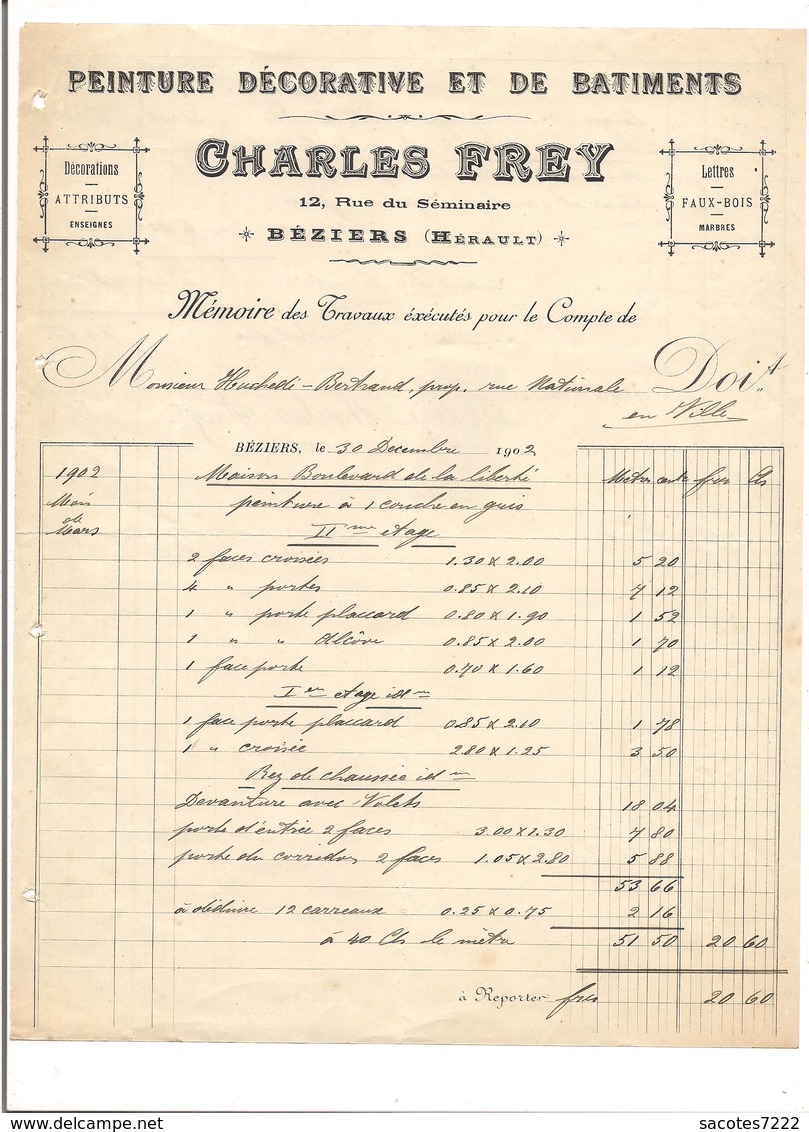 PEINTURE DÉCORATIVE ET DE BATIMENTS
CHARLES FREY
12, Rue du Séminaire
BÉZIERS (HÉRAULT)
Décorations
ATTRIBUTS
ENSEIGNES
Lettres
FAUX-BOIS
MARBRES
Mémoire des Travaux éxécutés pour le Compte de
Monsieur Huchedé-Bertrand, prop. rue Nationale Doit
en Ville
BÉZIERS, le 30 Decembre 1902
1902 Maison Boulevard de la liberté Metres cent frcs Cts
Mois de Mars
peinture à 1 couche en gris
II me etage
2 faces croisées 1.30 x 2.00 5 20
4 " portes 0.85 x 2.10 7 12
1 " porte placcard 0.80 x 1.90 1 52
1 " " Alcôve 0.85 x 2.00 1 70
1 face porte 0.70 x 1.60 1 12
I er etage id m
1 face porte placcard 0.85 x 2.10 1 78
1 " croisée 2.80 x 1.25 3 50
Rez de chaussée id m
Devanture avec Volets 18 04
porte d'entrée 2 faces 3.00 x 1.30 7 80
porte du corridor 2 faces 1.05 x 2.80 5 88
53 66
à déduire 12 carreaux 0.25 x 0.75 2 16
à 40 Cts le mètre 51 50 20 60
à Reporter frcs 20 60
www.delcampe.net
sacotes7222